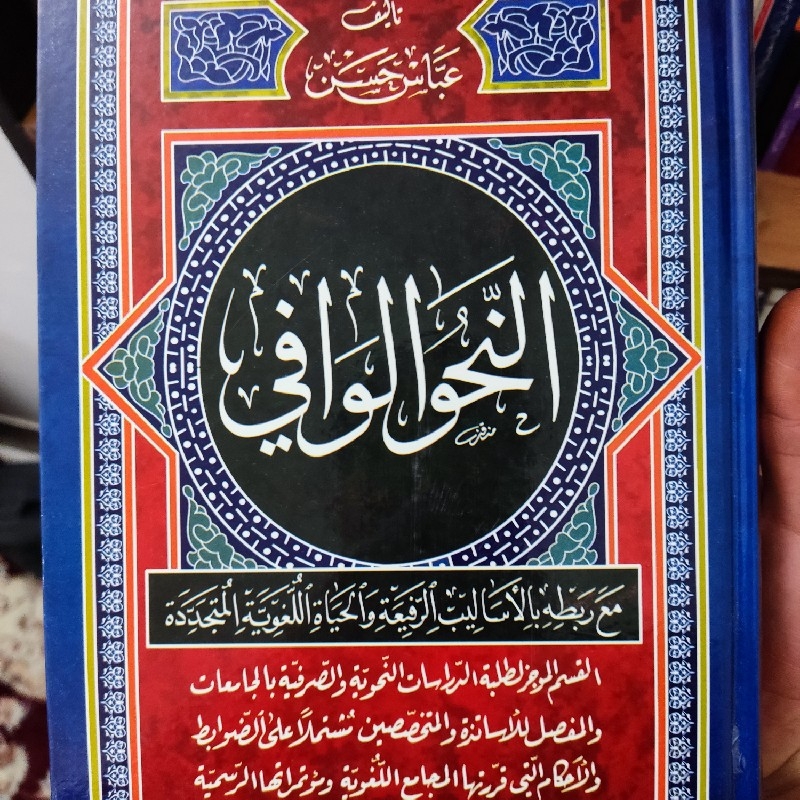 تأليف
عَبَّاسْ حَسَنْ
النَّحْوُ الْوَافِي
مَعَ رَبْطِهِ بِالْأَسَالِيْبِ الرَّفِيْعَةِ وَالْحَيَاةِ اللُّغَوِيَّةِ الْمُتَجَدِّدَةِ
القسم الموجز لطلبة الدراسات النحوية والصرفية بالجامعات
والمفصل للأساتذة والمتخصصين مشتملاً على الضوابط
والأحكام التي قررتها المجامع اللغوية ومؤتمراتها الرسمية